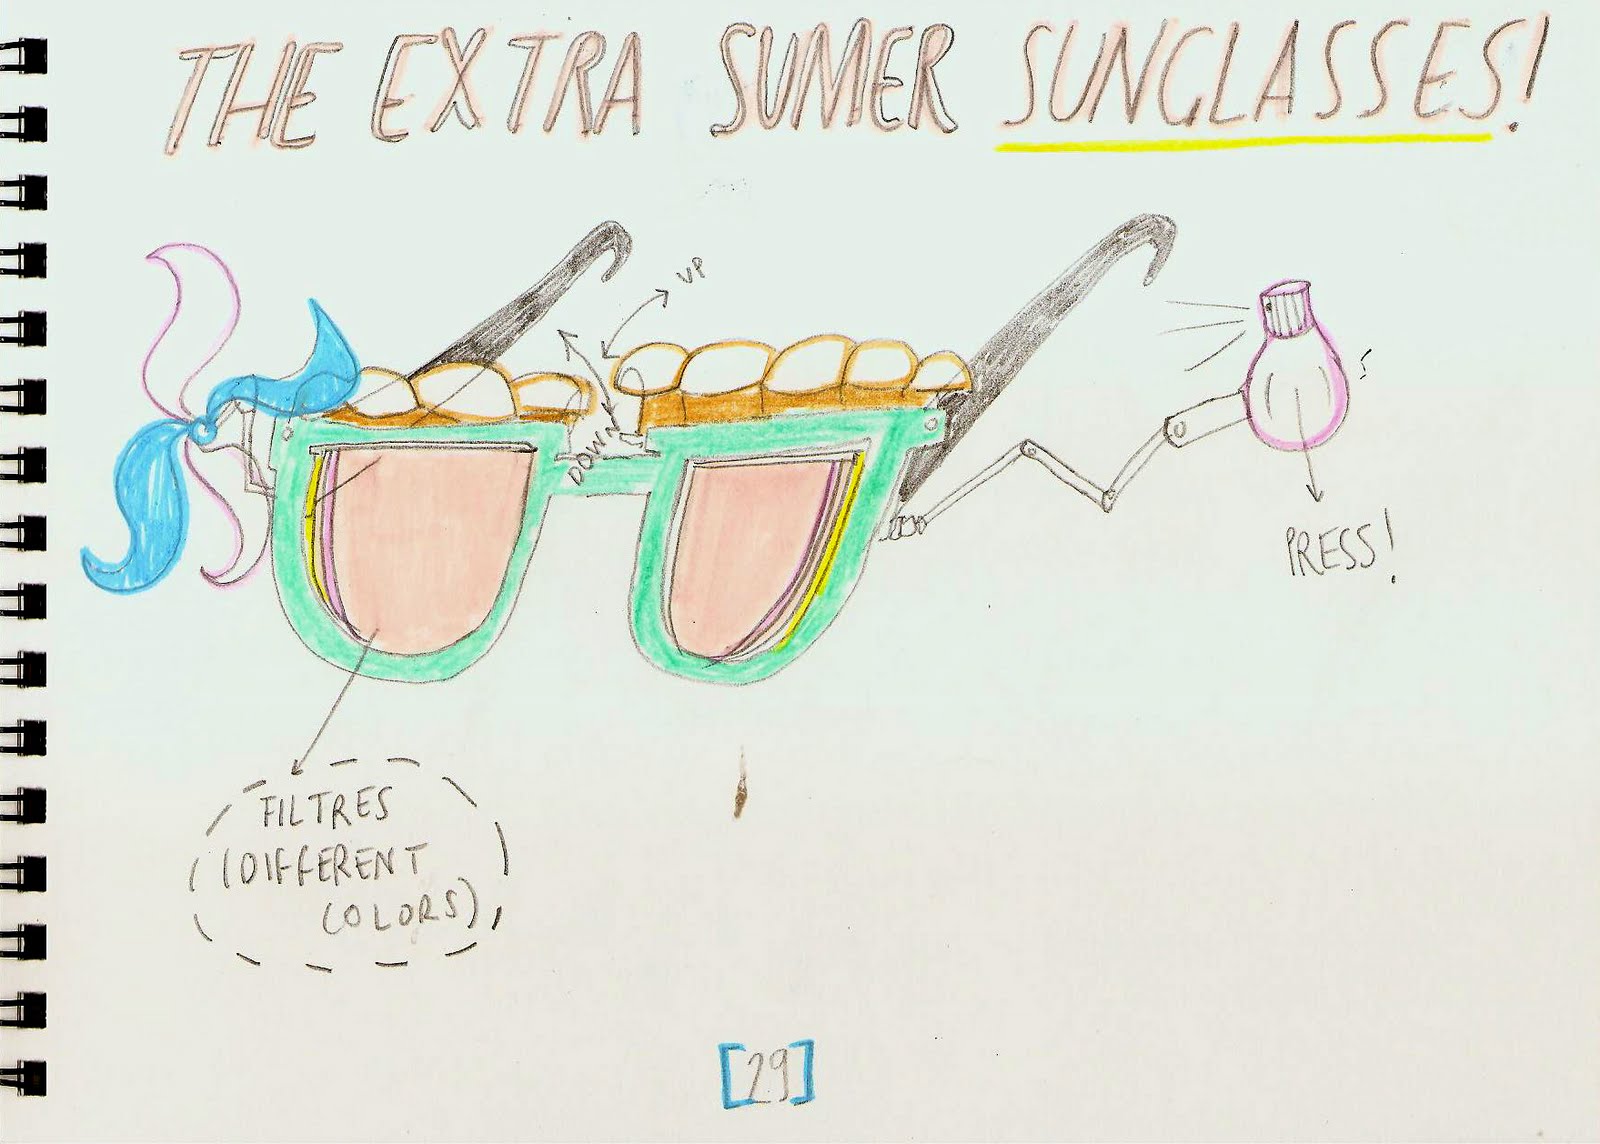 THE EXTRA SUMER SUNGLASSES!
UP
DOWN
PRESS!
FILTRES
(DIFFERENT
COLORS)
[29]